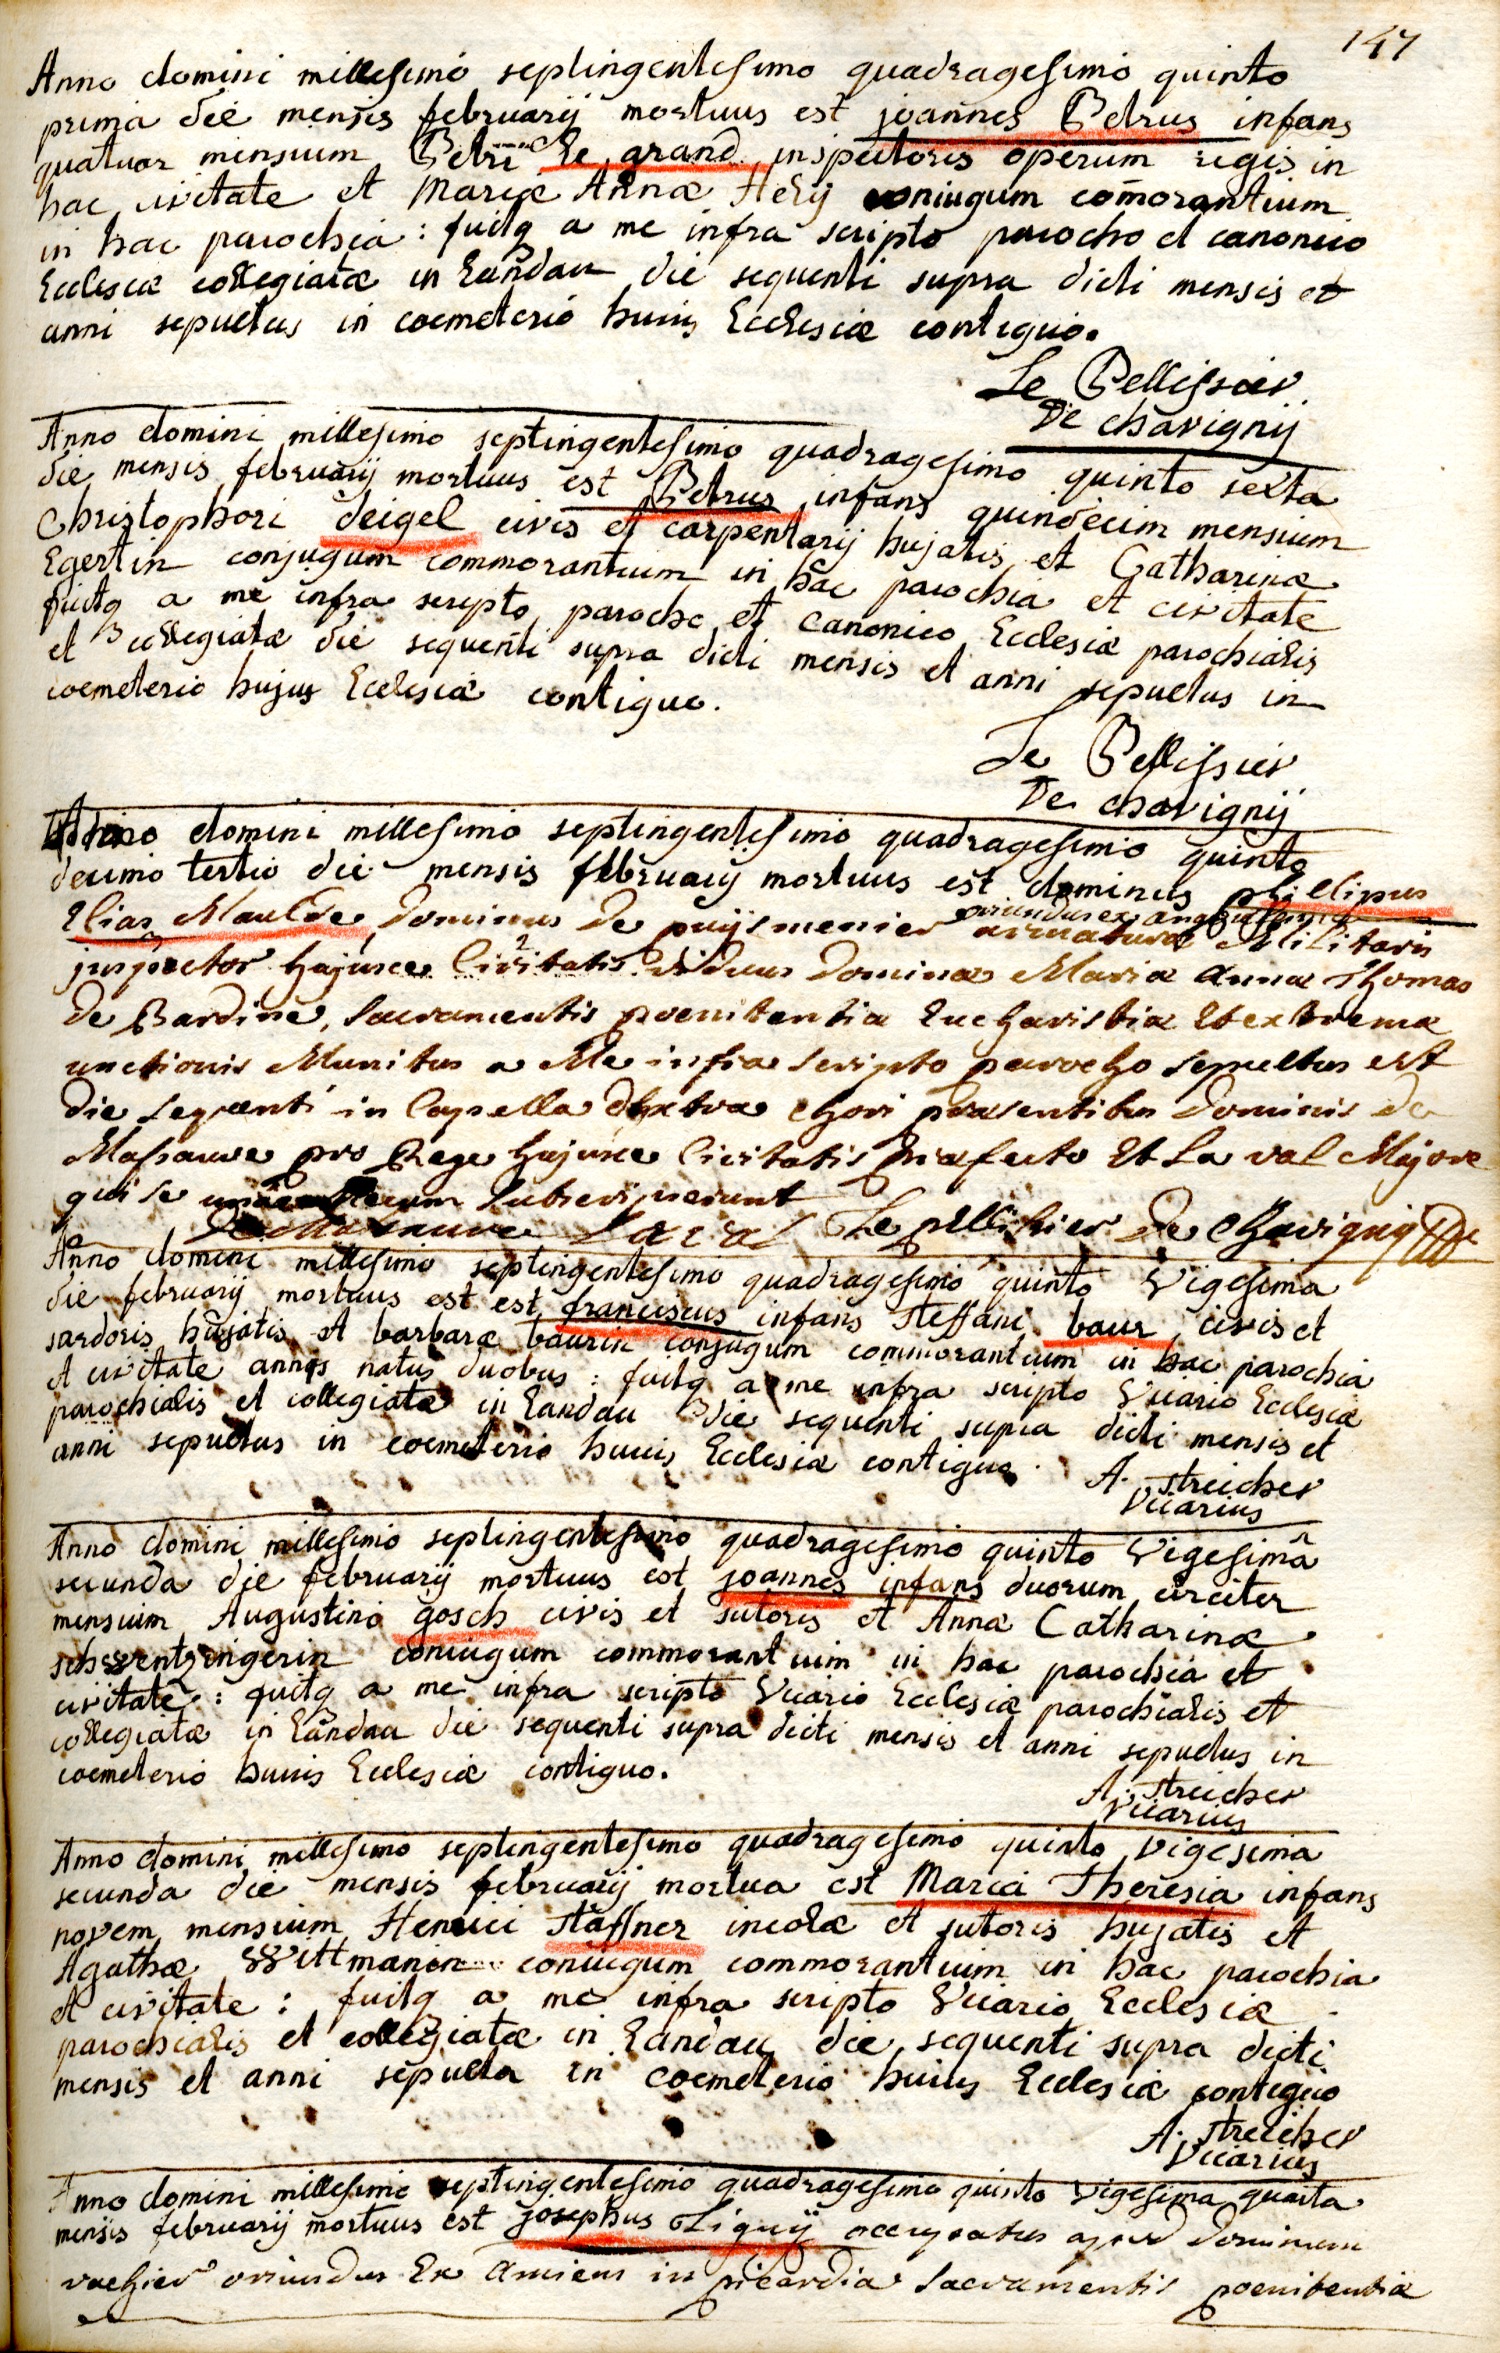 147
Anno domini millesimo septingentesimo quadragesimo quinto
prima die mensis februarij mortuus est joannes Petrus infans
quatuor mensium Petri le grand inspectoris operum regis in
hac civitate et Mariæ Annæ Hely coniugum com̄orantium
in hac parochia : fuitq a me infra scripto parocho et canonico
Ecclesiæ collegiatæ in Landau die sequenti supra dicti mensis et
anni sepultus in coemeterio huius Ecclesiæ contiguo.
Le Pellissier
De chavignij
Anno domini millesimo septingentesimo quadragesimo quinto sexta
die mensis februarij mortuus est Petrus infans quindecim mensium
Christophori deigel civis et carpentarij hujatis et Catharinæ
Egertin conjugum commorantium in hac parochia et civitate
fuitq a me infra scripto parocho et canonico Ecclesiæ parochialis
et collegiatæ die sequenti supra dicti mensis et anni sepultus in
coemeterio hujus Ecclesiæ contiguo.
Le Pellissier
De chavignij
Anno domini millesimo septingentesimo quadragesimo quinto
decimo tertio die mensis februarij mortuus est dominus phillipus
Elias Maulde Dominus de puijsmenier
oriundus ex
armaturæ Militaris
inspector hujusce Civitatis viduus Dominæ Mariæ Annæ Thomas
de Bardine, Sacramentis poenitentiæ Eucharistiæ Et extremæ
unctionis Munitus a Me infra scripto parocho sepultus est
die sequenti in Capella dextra chori præsentibus Dominis de
Massauve pro Rege hujusce Civitatis præfecto Et La val Majore
qui se subscripserunt
De Massauve Laval Le pellissier De Chavignij
Anno domini millesimo septingentesimo quadragesimo quinto Vigesima
die februarij mortuus est est franciscus infans Steffani baur civis et
sardoris hujatis et barbaræ baurin conjugum commorantium in hac parochia
et civitate annos natus duobus : fuitq a me infra scripto Vicario Ecclesiæ
parochialis et collegiatæ in Landau die sequenti supra dicti mensis et
anni sepultus in coemeterio huius Ecclesiæ contiguo.
A. Streicher
Vicarius
Anno domini millesimo septingentesimo quadragesimo quinto Vigesimâ
secunda die februarij mortuus est joannes infans duorum circiter
mensium Augustini gosch civis et sutoris et Annæ Catharinæ
coniugum commorantium in hac parochia et
civitate : fuitq a me infra scripto Vicario Ecclesiæ parochialis et
collegiatæ in Landau die sequenti supra dicti mensis et anni sepultus in
coemeterio huius Ecclesiæ contiguo.
A. Streicher
Vicarius
Anno domini millesimo septingentesimo quadragesimo quinto vigesima
secunda die mensis februarij mortua est Maria Theresia infans
novem mensium Henrici Staffner incolæ et sutoris hujatis et
Agathæ Wittmanin coniugum commorantium in hac parochia
et civitate : fuitq a me infra scripto Vicario Ecclesiæ
parochialis et collegiatæ in Landau die sequenti supra dicti
mensis et anni sepulta in coemeterio huius Ecclesiæ contiguo
A. Streicher
Vicarius
Anno domini millesimo septingentesimo quadragesimo quinto Vigesima quarta
mensis februarij mortuus est josephus Liquij occupatus apud Dominum
vachier oriundus Ex Amiens in picardia Sacramentis poenitentiæ